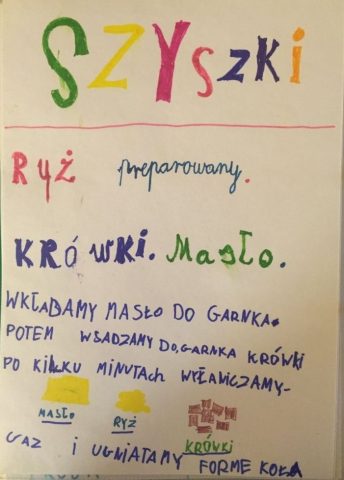 SZYSZKI
RYŻ preparowany.
KRÓWKI. Masło.
WKŁADAMY MASŁO DO GARNKA.
POTEM WSADZAMY DO GARNKA KRÓWKI
PO KILKU MINUTACH WYŁANICZAMY-
MASŁO RYŻ KRÓWKI
GAZ i UGNIATAMY FORME KOŁA